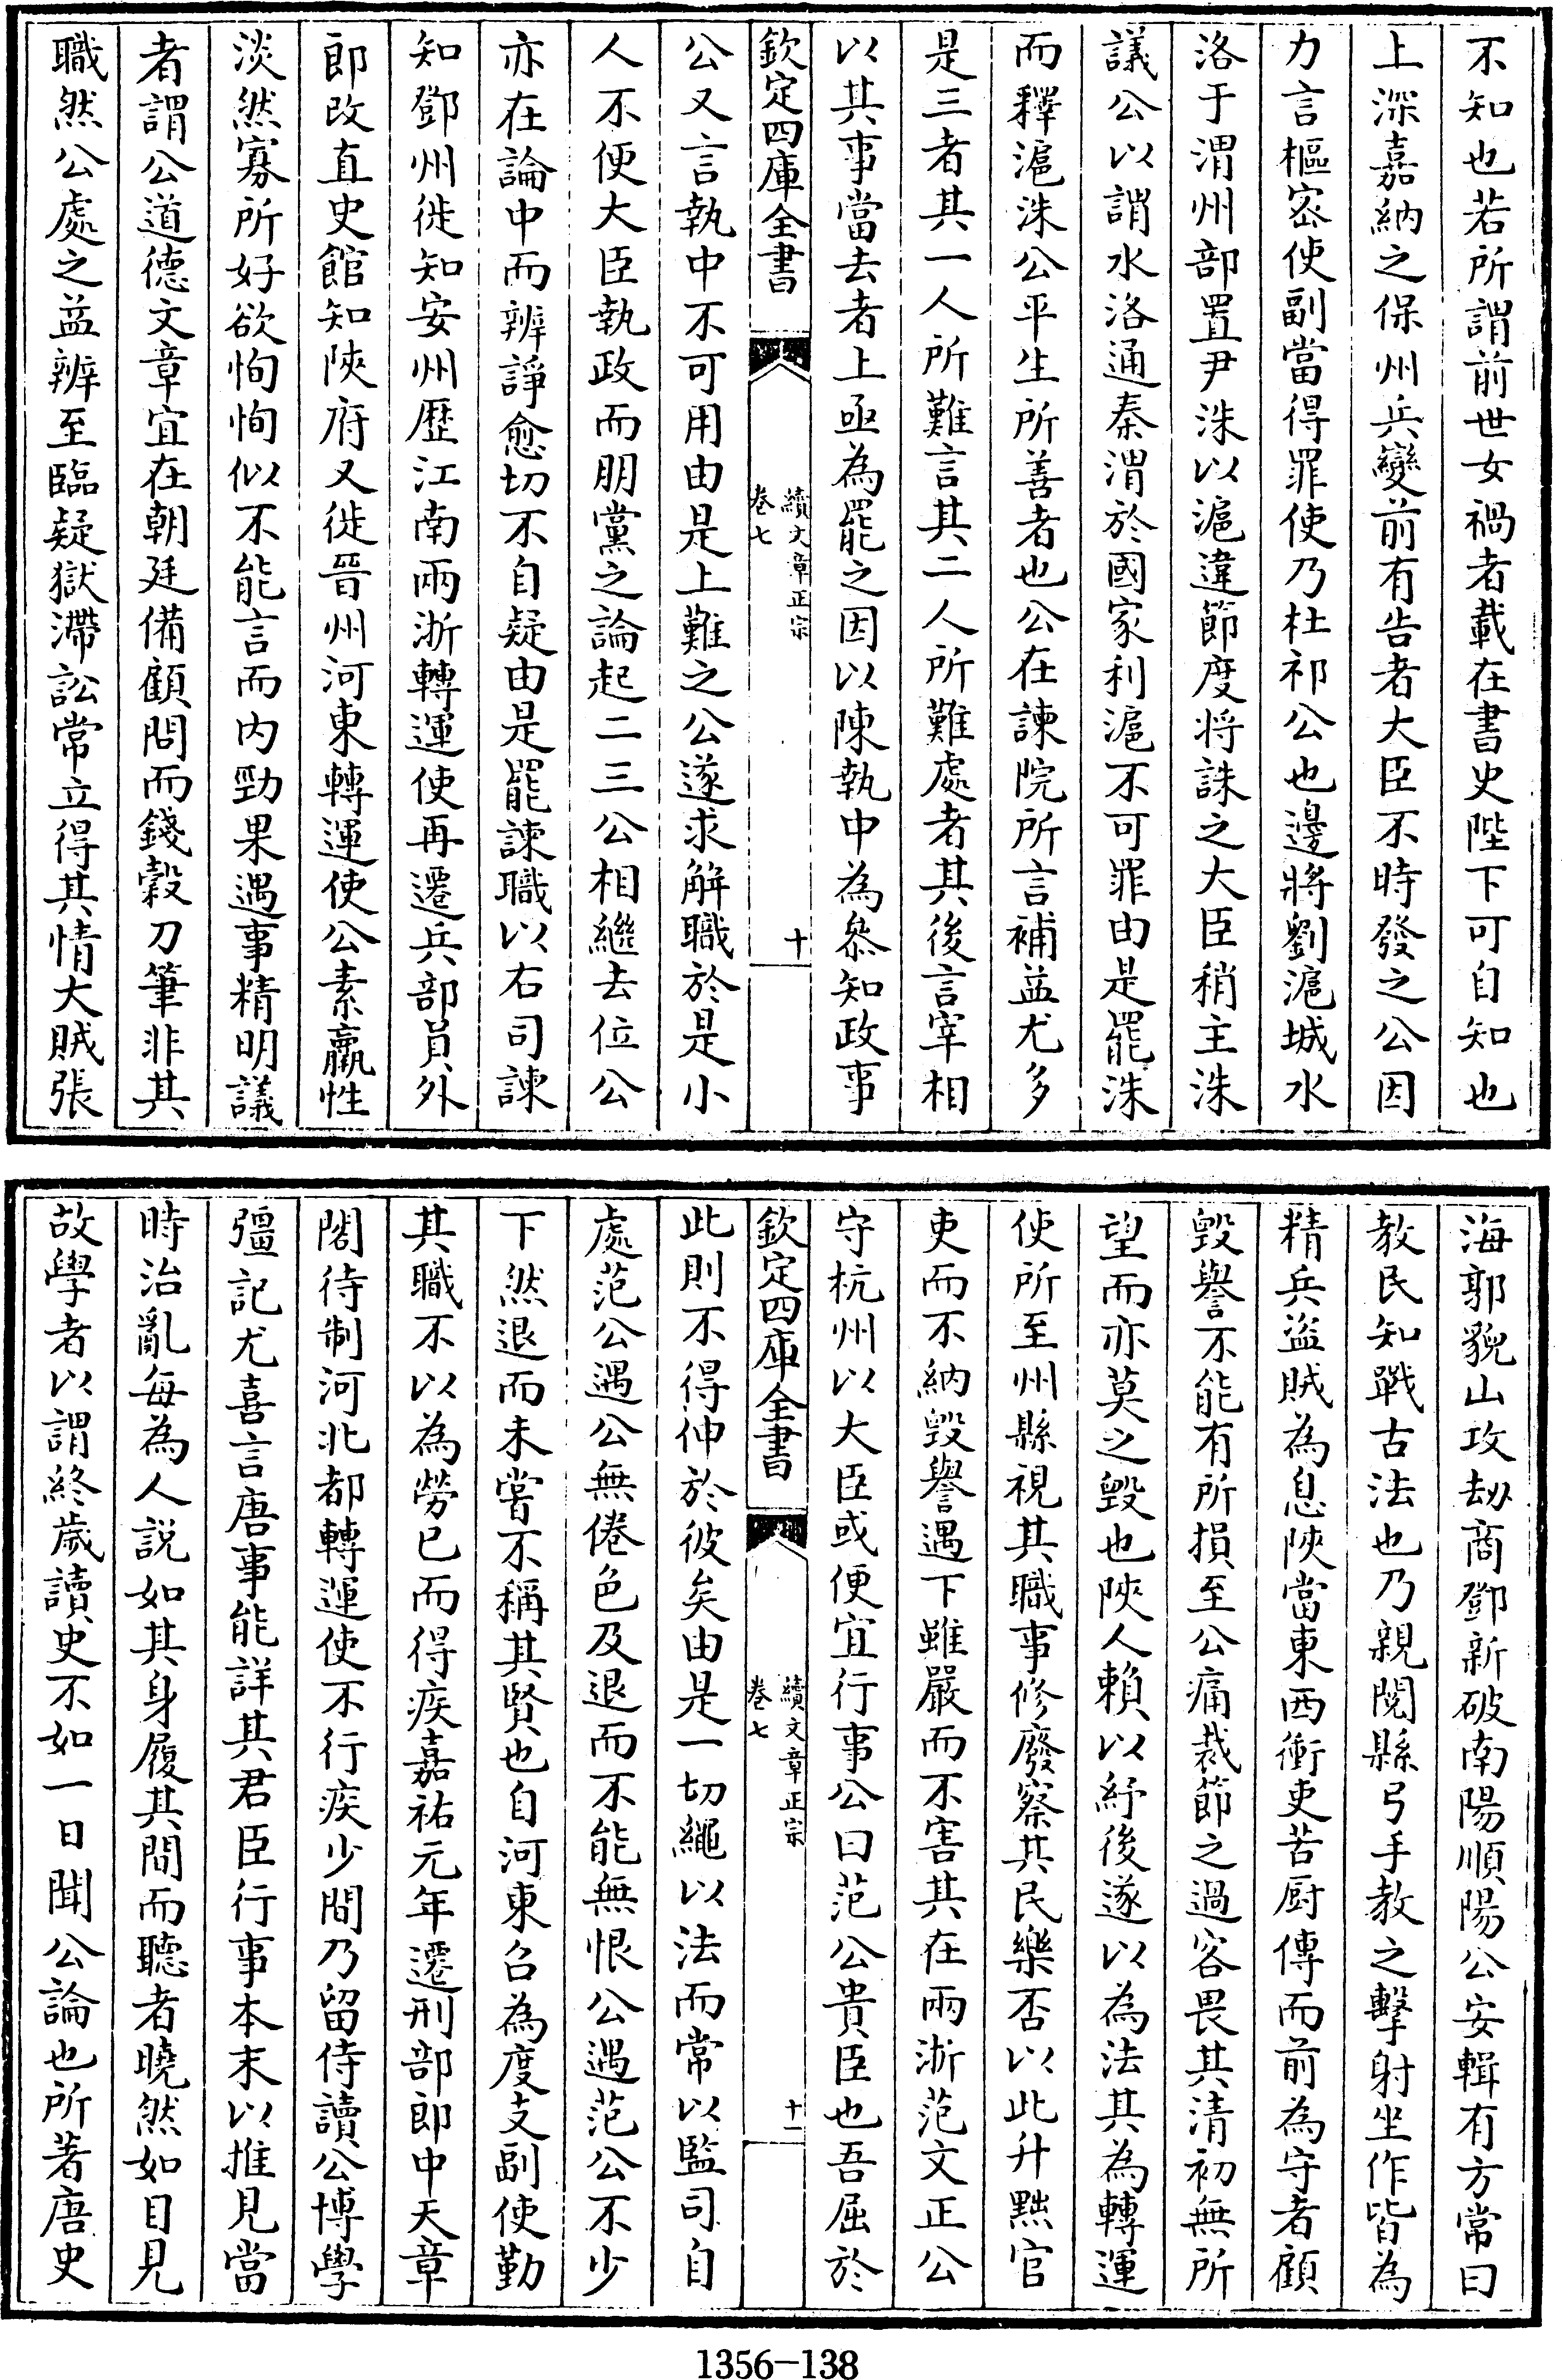 不知也若所謂前世女禍者載在書史陛下可自知也
上深嘉納之保州兵變前有告者大臣不時發之公因
力言樞宻使副當得罪使乃杜祁公也邊將劉滬城水
洛于渭州部署尹洙以滬違節度将誅之大臣稍主洙
議公以謂水洛通秦渭於國家利滬不可罪由是罷洙
而釋滬洙公平生所善者也公在諫院所言補益尤多
是三者其一人所難言其二人所難處者其後言宰相
以其事當去者上亟為罷之因以陳執中為叅知政事
欽定四庫全書
續文章正宗
卷七
十
公又言執中不可用由是上難之公遂求解職於是小
人不便大臣執政而朋黨之論起二三公相繼去位公
亦在論中而辨諍愈切不自疑由是罷諫職以右司諫
知鄧州徙知安州歴江南兩浙轉運使再遷兵部員外
郎改直史館知陜府又徙晉州河東轉運使公素羸性
淡然寡所好欲恂恂似不能言而内勁果遇事精明議
者謂公道德文章宜在朝廷備顧問而錢榖刀筆非其
職然公處之益辨至臨疑獄滯訟常立得其情大賊張
海郭貌山攻刼商鄧新破南陽順陽公安輯有方常曰
教民知戰古法也乃親閲縣弓手教之擊射坐作皆為
精兵盗賊為息陜當東西衝吏苦厨傳而前為守者顧
毁譽不能有所損至公痛裁節之過客畏其清初無所
望而亦莫之毁也陜人賴以紓後遂以為法其為轉運
使所至州縣視其職事修廢察其民樂否以此升黜官
吏而不納毁譽遇下雖嚴而不害其在兩浙范文正公
守杭州以大臣或便宜行事公曰范公貴臣也吾屈於
欽定四庫全書
續文章正宗
卷七
十一
此則不得伸於彼矣由是一切繩以法而常以監司自
處范公遇公無倦色及退而不能無恨公遇范公不少
下然退而未嘗不稱其賢也自河東召為度支副使勤
其職不以為勞已而得疾嘉祐元年遷刑部郎中天章
閣待制河北都轉運使不行疾少間乃留侍讀公博學
彊記尤喜言唐事能詳其君臣行事本末以推見當
時治亂每為人説如其身履其間而聽者曉然如目見
故學者以謂終歲讀史不如一日聞公論也所著唐史
1356-138